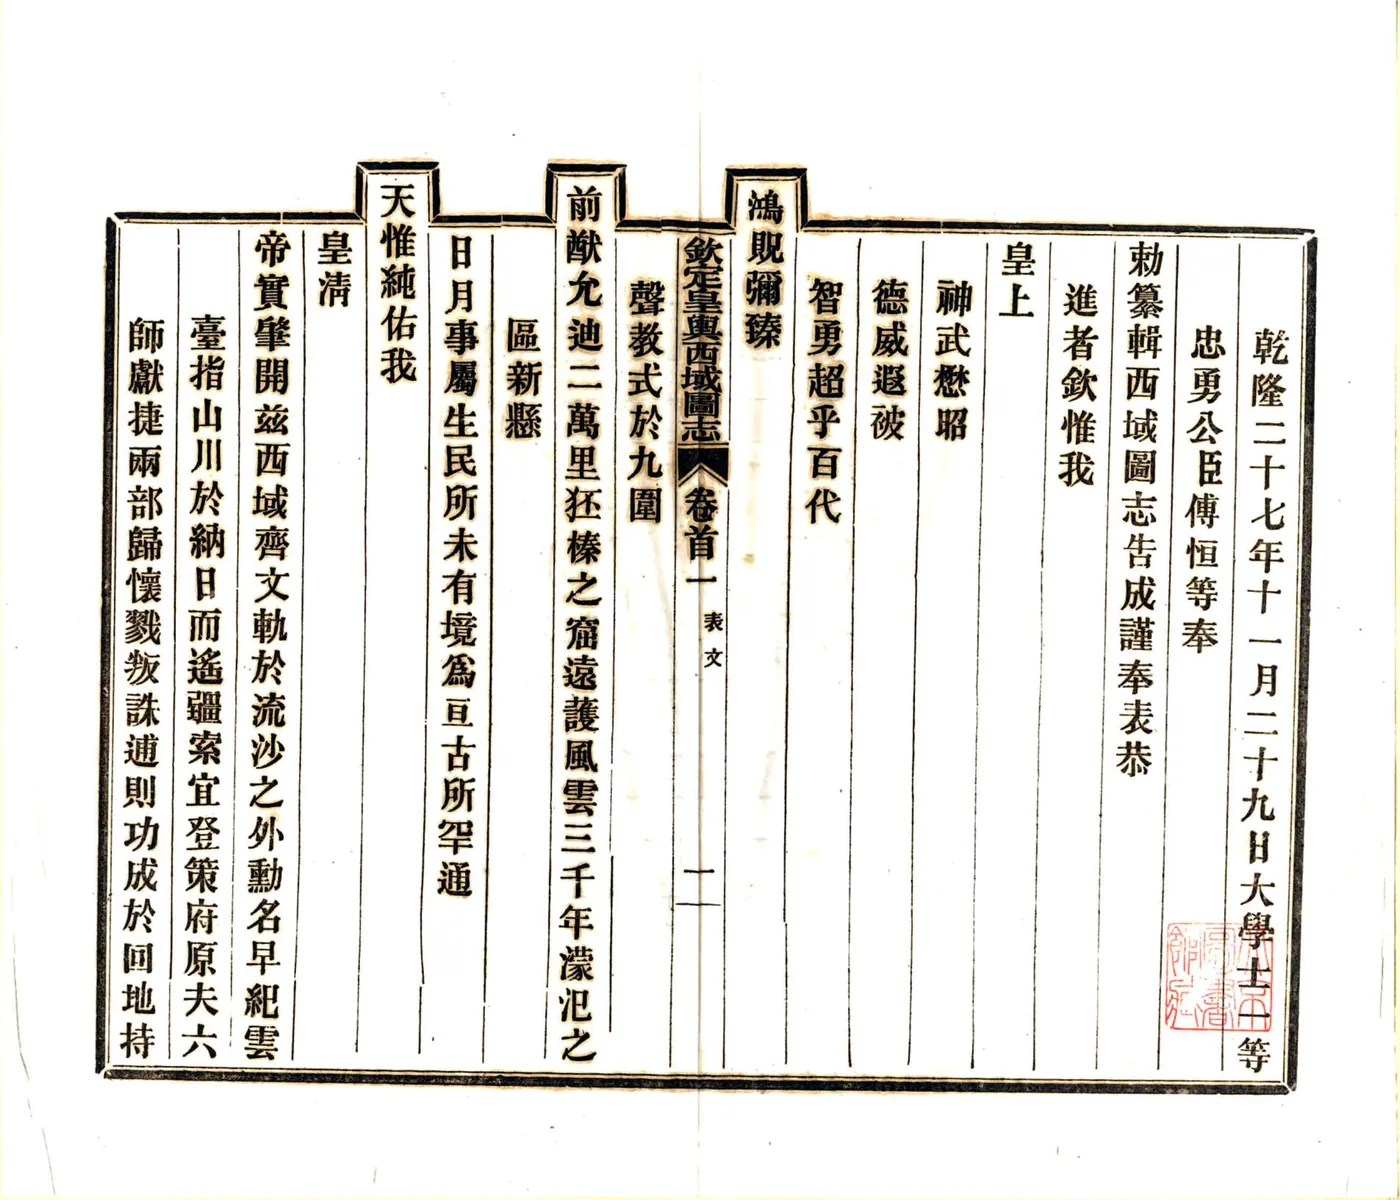 乾隆二十七年十一月二十九日大學士一等
忠勇公臣傅恒等奉
勅纂輯西域圖志告成謹奉表恭
進者欽惟我
皇上
神武懋昭
德威遐被
智勇超乎百代
鴻貺彌臻
欽定皇輿西域圖志
卷首一
表文
一
聲教式於九圍
前猷允迪二萬里狉榛之窟遠護風雲三千年濛汜之
區新懸
日月事屬生民所未有境爲亘古所罕通
天惟純佑我
皇清
帝實肇開茲西域齊文軌於流沙之外勳名早紀雲
臺指山川於納日而遙疆索宜登策府原夫六
師獻捷兩部歸懷戮叛誅逋則功成於回地持